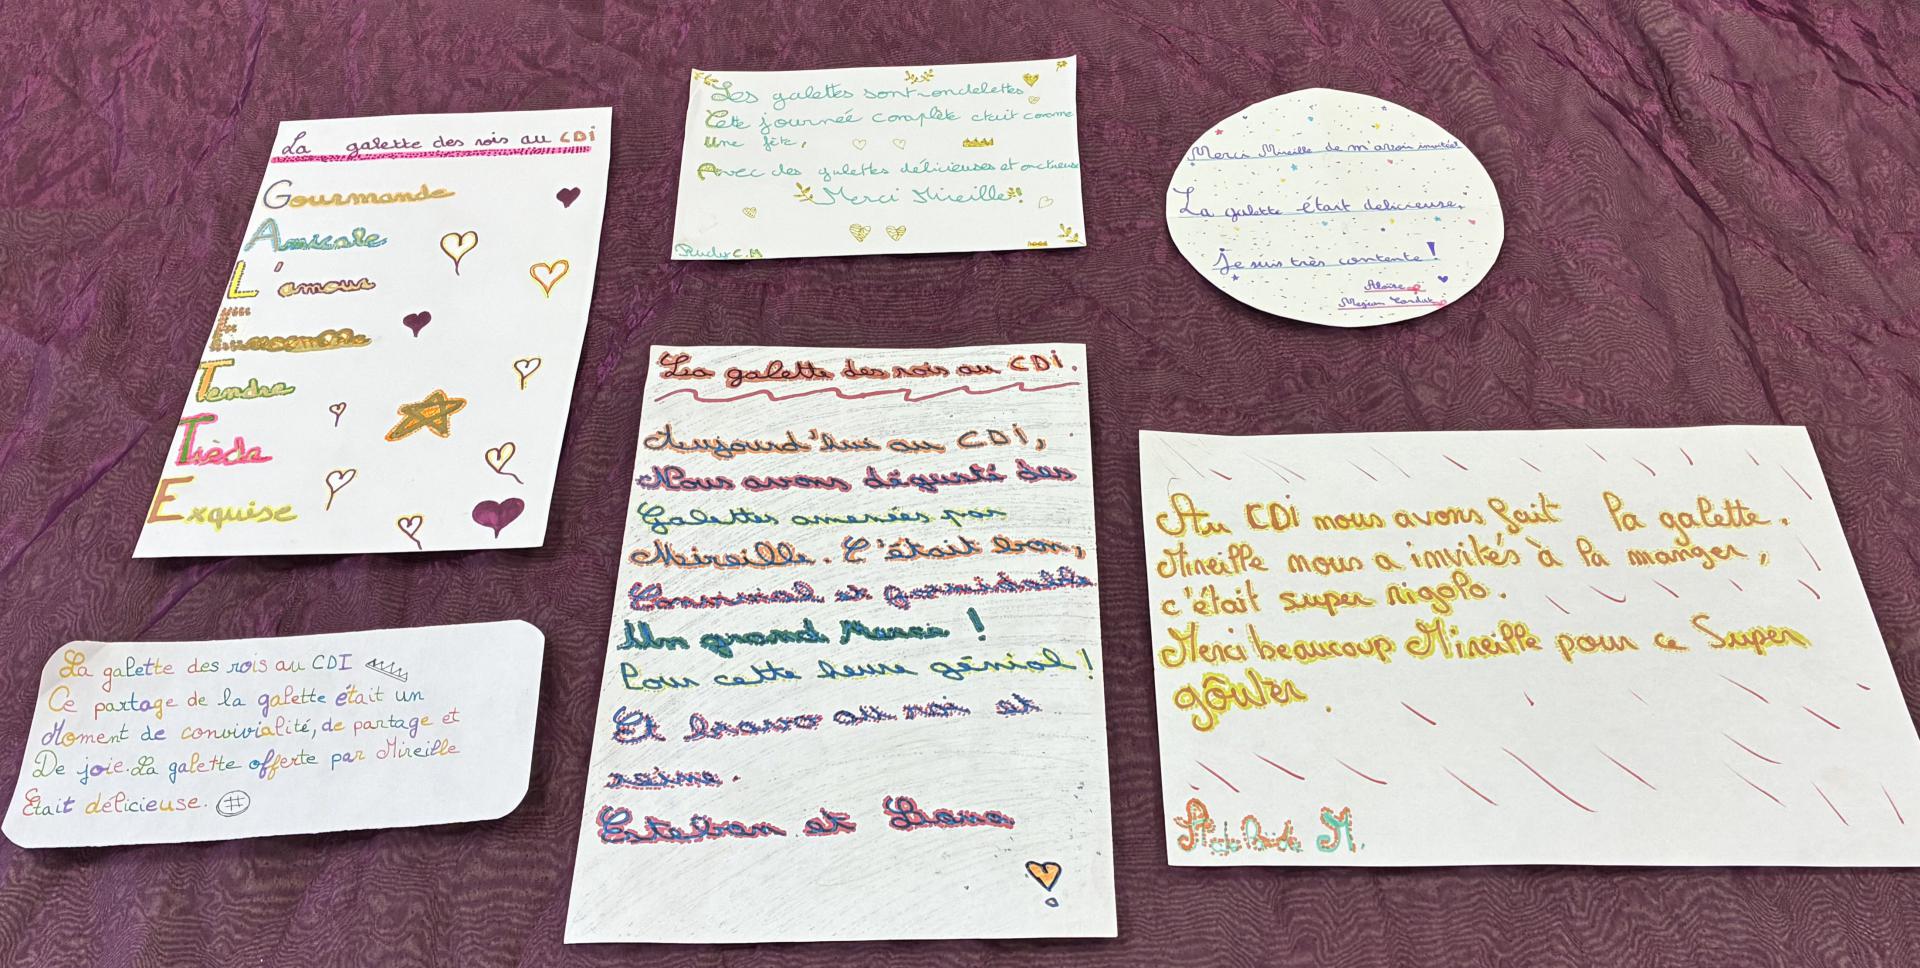 La galette des rois au CDI
Gourmande
Amicale
L'amour
Tendre
Tiède
Exquise
Les galettes sont rondelettes
Cette journeé complète etait comme
Une fête,
Avec des galettes délicieuses et onctueuse
Merci Mireille!
C.M
Merci Mireille de m'avoir invitée!
La galette était delicieuse,
je suis très contente!
La galette des rois au CDI
Ce partage de la galette était un
Moment de convivialité, de partage et
De joie. La galette offerte par Mireille
Était délicieuse. #
Les galette des rois au CDI.
Aujourd'hui au CDI,
Nous avons dégusté des
Galettes amenées par
Mireille. C'était bon,
Convivial et
Un grand Merci !
Pour cette heure génial !
Et bravo au roi et
reine.
Esteban et
Au CDI nous avons fait la galette.
Mireille nous a invités à la manger,
c'était super rigolo.
Merci beaucoup Mireille pour ce Super
goûter.
M.